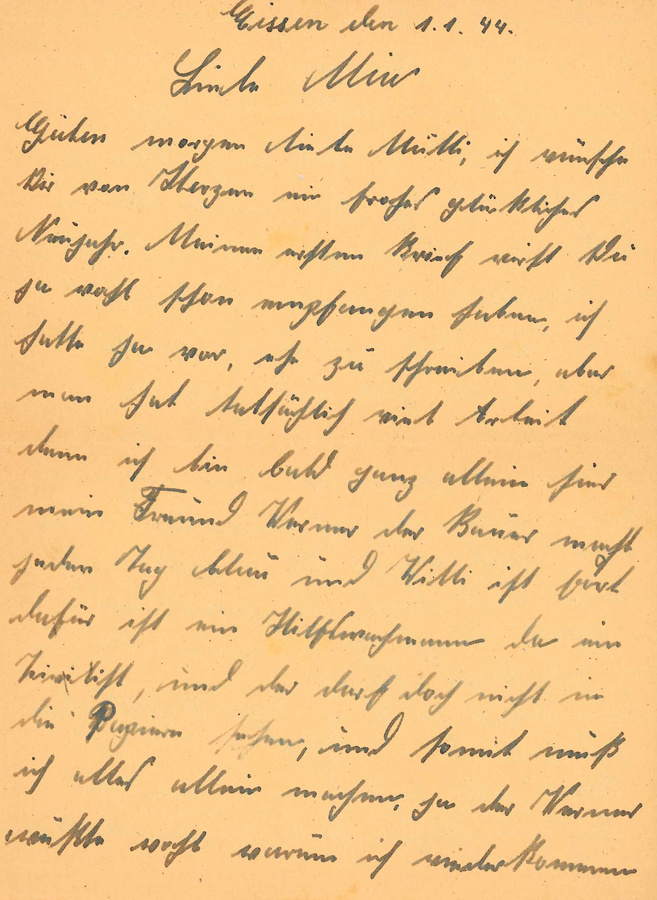 Gissen den 1.1.44.
Liebe Miw
Guten morgen liebe Mutti, ich wünsche
Dir von Herzen ein frohes glückliches
Neujahr. Meinen ersten Brief wirst Du
ja wohl schon empfangen haben, ich
hatte ja vor, ehe zu schreiben, aber
man hat tatsächlich viel Arbeit
denn ich bin bald ganz allein hier
mein Freund Werner der Bauer macht
jeden Tag blau und Willi ist fort
dafür ist ein Hilfswachmann da ein
Zivilist, und der darf doch nicht in
die Papiere sehen, und somit muß
ich alles allein machen, ja der Werner
wußte wohl warum ich wiederkommen